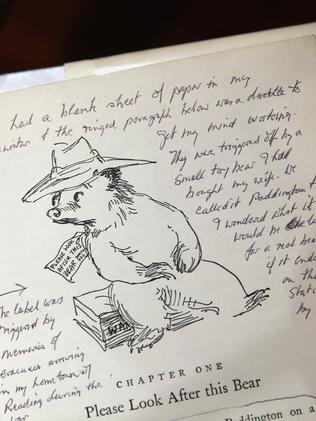 had a blank sheet of paper in my
& the ringed paragraph below was a doodle to
get my mind working.
They were triggered off by a
small toy bear I had
bought my wife. We
called it Paddington &
I wondered what it
would be like
for a real bear
if it
on the
Stati
by
PLEASE LOOK
AFTER THIS
BEAR
WAN
The label was
triggered by
memories of
evacuees arriving
in my home town of
Reading during the
war.
CHAPTER ONE
Please Look After this Bear
Paddington on a